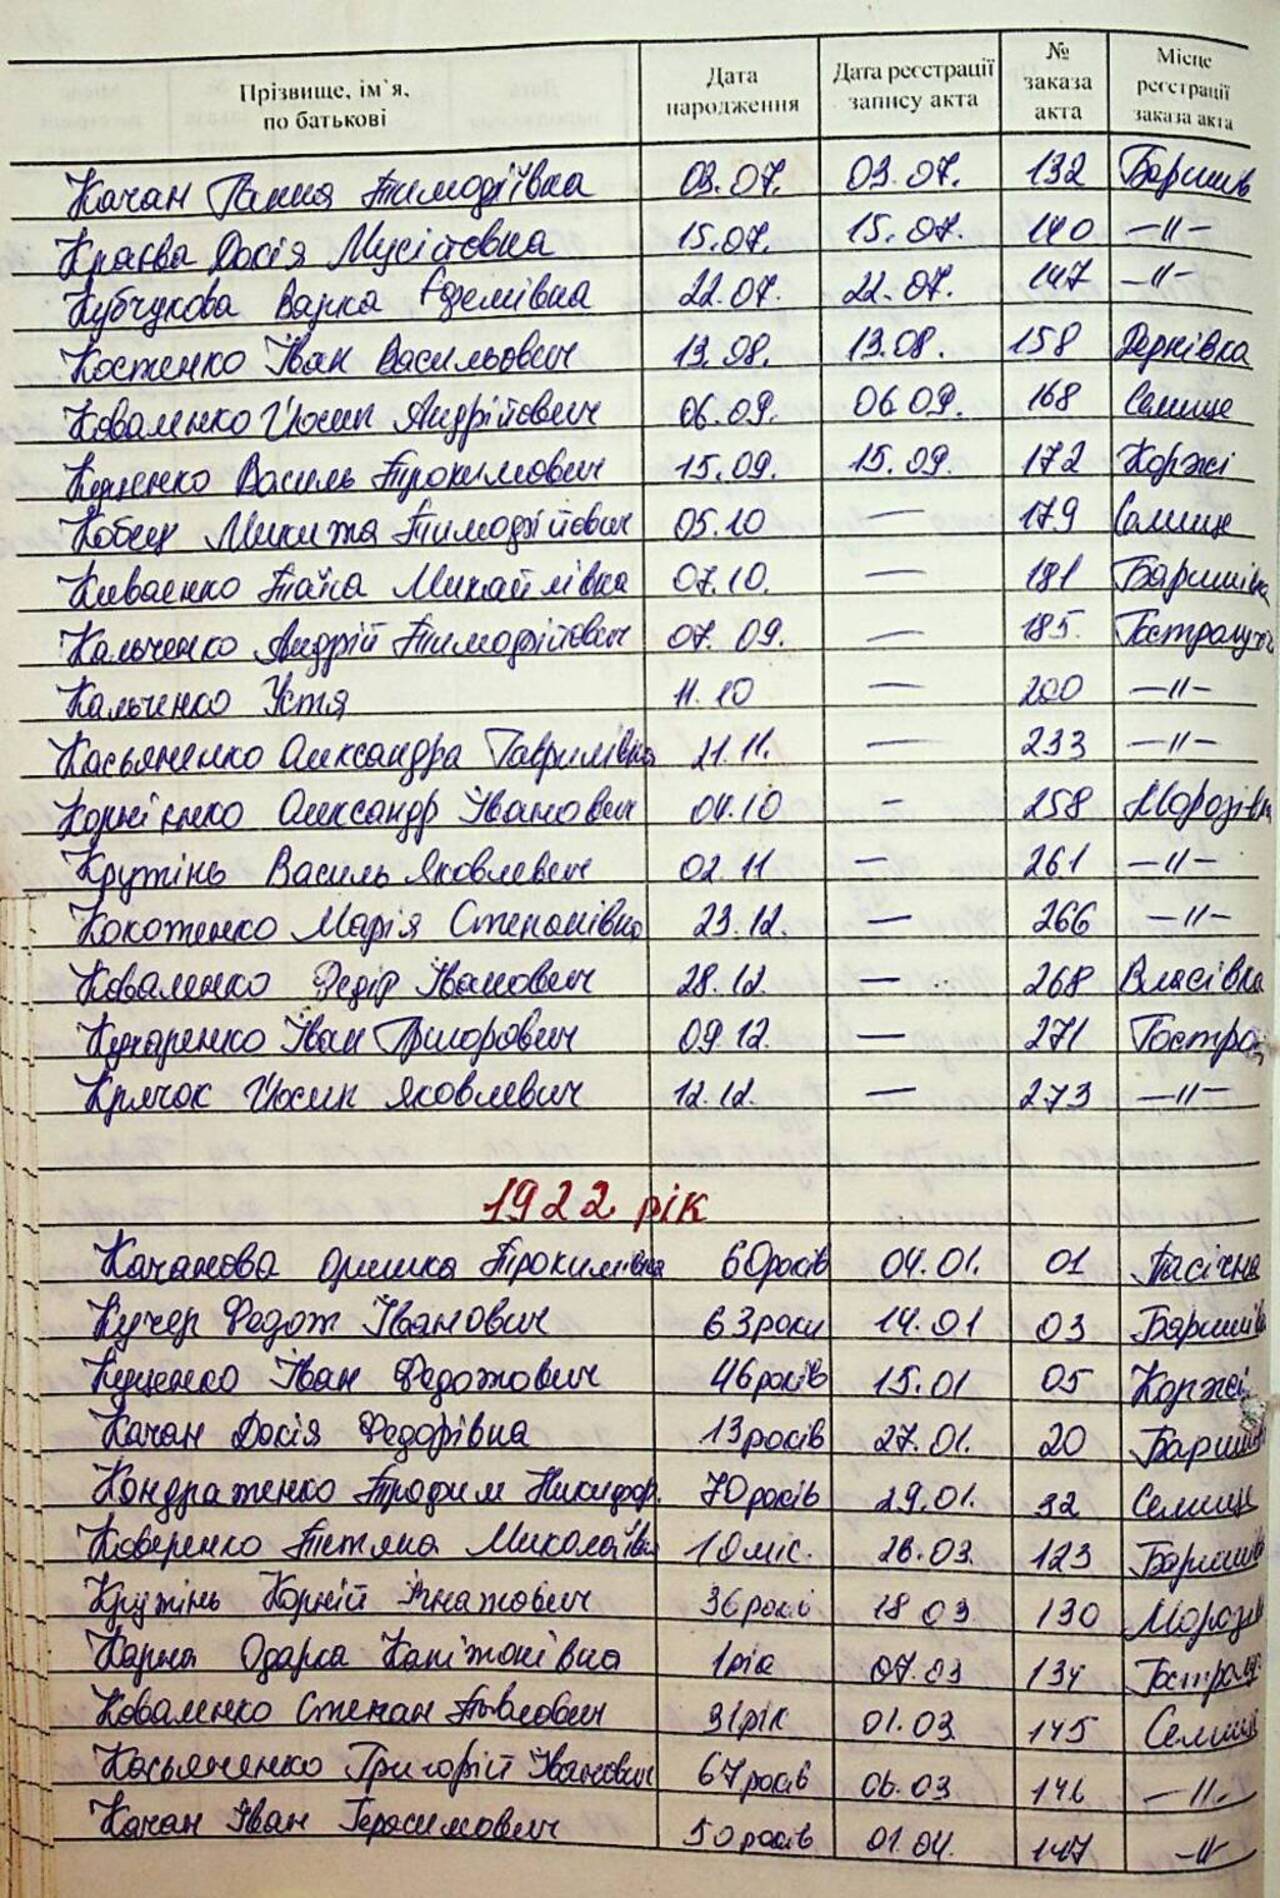 Прізвище, ім`я, по батькові Дата народження Дата реєстрації запису акта № заказа акта Місце реєстрації заказа акта
Качан Ганна Тимофіївна 03.07. 03.07. 132 Баришів
Краєва Докія Мусіївна 15.07. 15.07. 140 —"—
Варка 22.07. 22.07. 147 —"—
Костенко Іван Васильович 13.08. 13.08. 158 Дернівка
Коваленко Йосип Андрійович 06.09. 06 09. 168 Селище
Куценко Василь Трохимович 15.09. 15.09. 172 Коржі
Кобец Микита Тимофійович 05.10 — 179 Селище
Киваенко Таїса Михайлівна 07.10. — 181 Баришівка
Кальченко Андрій Тимофійович 07.09. — 185.
Кальченко Устя 11.10 — 200 —"—
Касьяненко Олександра Гаврилівна 21.11. — 233 —"—
Корнієнко Олександр Іванович 04.10 — 258 Морозівка
Крутінь Василь Яковлевич 02.11 — 261 —"—
Кокотенко Марія Степанівна 23.12. — 266 —"—
Коваленко Федір Іванович 28.12. — 268 Власівка
Кухаренко Іван 09.12. — 271 Гостро
Крячок Йосип Яковлевич 12.12. — 273 —"—
1922 рік
Качанова Оришка Трохимівна 60років 04.01. 01 Пасічна
Кучер Федот Іванович 63роки 14.01 03 Баришів
Куценко Іван Федотович 46років 15.01 05 Коржі
Качан Докія Федорівна 13років 27.01. 20 Бариш
Кондратенко Трофим Никифор. 70років 29.01. 32 Селище
Коверенко Тетяна 10міс. 26.03. 123 Баришів
Крутінь Корній Ігнатович 36рокі 18 03 130 Морозі
Карна Одарка Капітонівна 1рік 07.03 134
Коваленко Степан Павлович 31рік 01.03 145 Селище
Касьяненко Григорій Іванович 67років 06.03 146 —"—
Качан Іван Герасимович 50років 01.04. 147 —"—